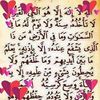 اللَّهُ لَا إِلَٰهَ إِلَّا هُوَ الْحَيُّ الْقَيُّومُ
لَا تَأْخُذُهُ سِنَةٌ وَلَا نَوْمٌ لَهُ مَا فِي
السَّمَوَاتِ وَمَا فِي الْأَرْضِ مَنْ ذَا
الَّذِي يَشْفَعُ عِنْدَهُ إِلَّا بِإِذْنِهِ
يَعْلَمُ مَا بَيْنَ أَيْدِيهِمْ وَمَا خَلْفَهُمْ
وَلَا يُحِيطُونَ بِشَيْءٍ مِنْ عِلْمِهِ إِلَّا
بِمَا شَاءَ وَسِعَ كُرْسِيُّهُ